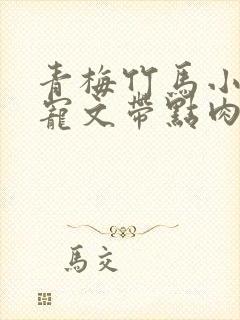 青梅竹馬小
寵文帶點肉
馬交